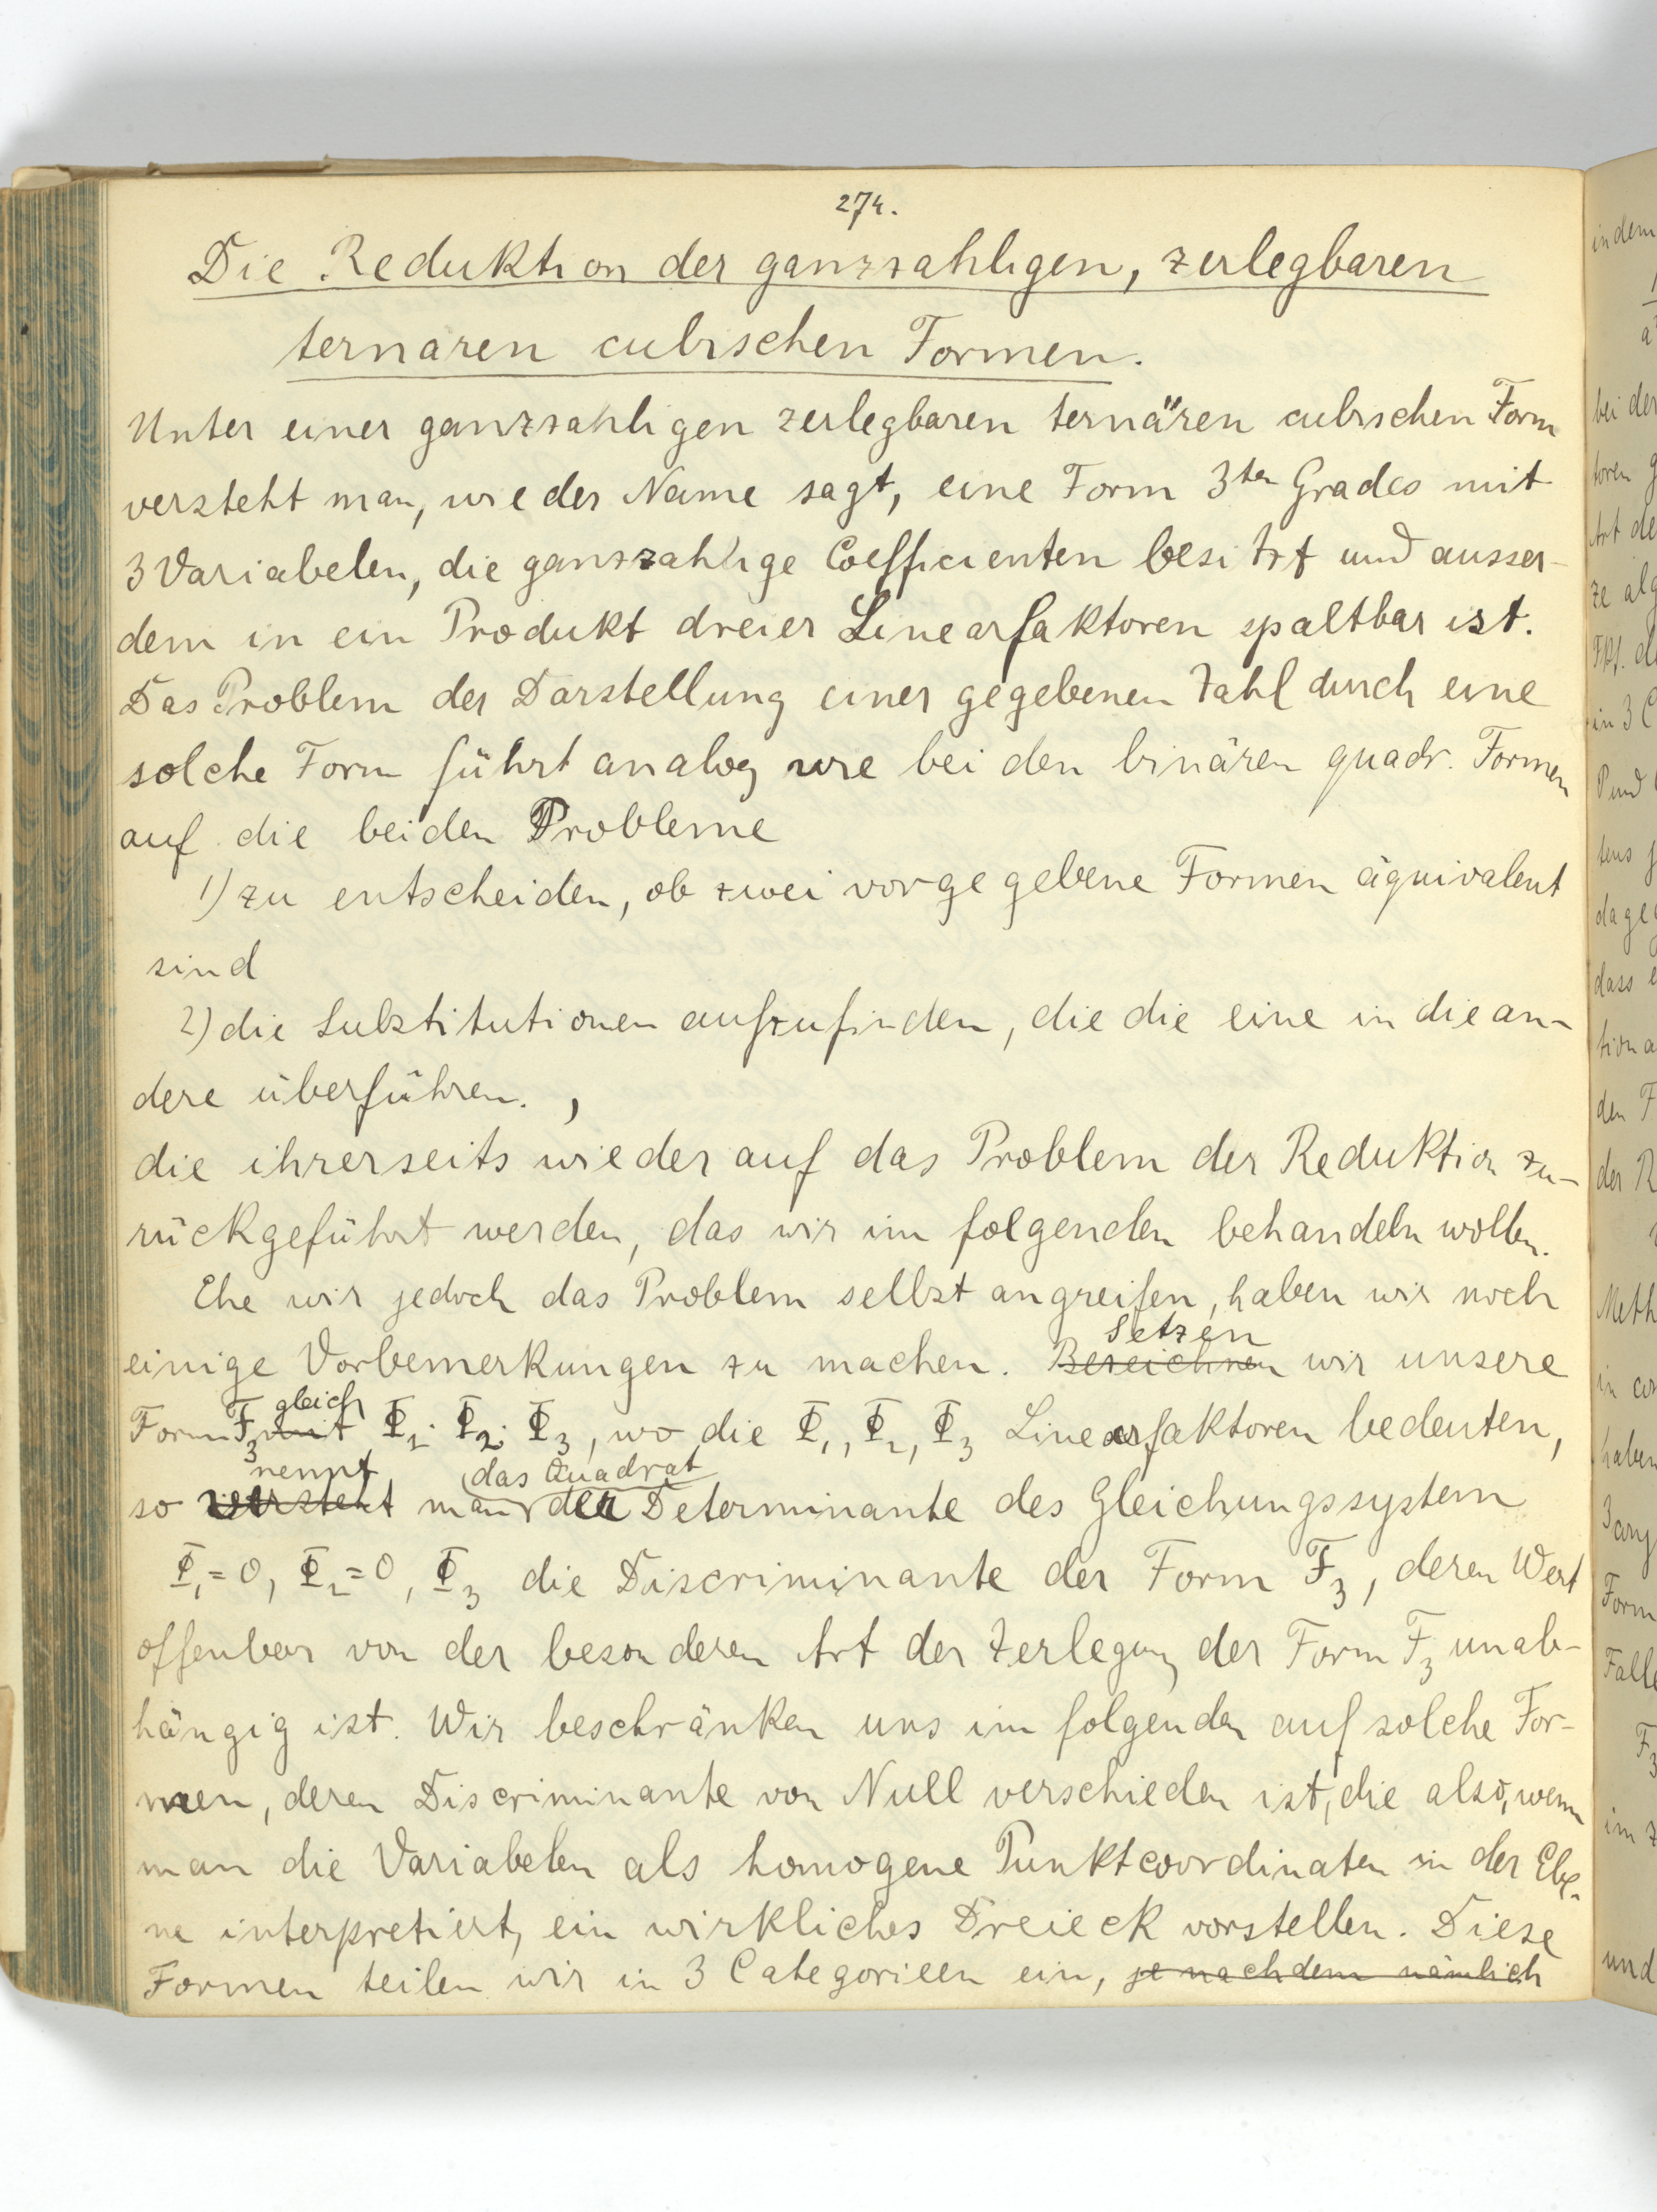 274.
Die Reduktion der ganzzahligen, zerlegbaren
ternären cubischen Formen.
Unter einer ganzzahligen zerlegbaren ternären cubischen Form
versteht man, wie der Name sagt, eine Form 3ten Grades mit
3 Variabelen, die ganzzahlige Coefficienten besitzt und ausser-
dem in ein Produkt dreier Linearfaktoren spaltbar ist.
Das Problem der Darstellung einer gegebenen Zahl durch eine
solche Form führt analog wie bei den binären quadr. Formen
auf die beiden Probleme
1) zu entscheiden, ob zwei vorgegebene Formen äquivalent
sind
2) die Substitutionen aufzufinden, die die eine in die an-
dere überführen. ,
die ihrerseits wieder auf das Problem der Reduktion zu-
rückgeführt werden, das wir im folgenden behandeln wollen.
Ehe wir jedoch das Problem selbst angreifen, haben wir noch
Setzen
einige Vorbemerkungen zu machen. Bezeichnen wir unsere
gleich
Form F₃ mit Φ₁. Φ₂. Φ₃, wo die Φ₁, Φ₂, Φ₃ Linearfaktoren bedeuten,
nennt das Quadrat
so versteht man der Determinante des Gleichungssystem
Φ₁=0, Φ₂=0, Φ₃ die Discriminante der Form F₃, deren Wert
offenbar von der besonderen Art der Zerlegung der Form F₃ unab-
hängig ist. Wir beschränken uns im folgenden auf solche For-
men, deren Discriminante von Null verschieden ist, die also, wenn
man die Variabelen als homogene Punktcoordinaten in der Ebe-
ne interpretiert, ein wirkliches Dreieck vorstellen. Diese
Formen teilen wir in 3 Categorieen ein, je nachdem nämlich
indem
bei der
in 3 C
P und
dass
den F
der R
Meth
haben
Form
Falle
F₃
im z
und